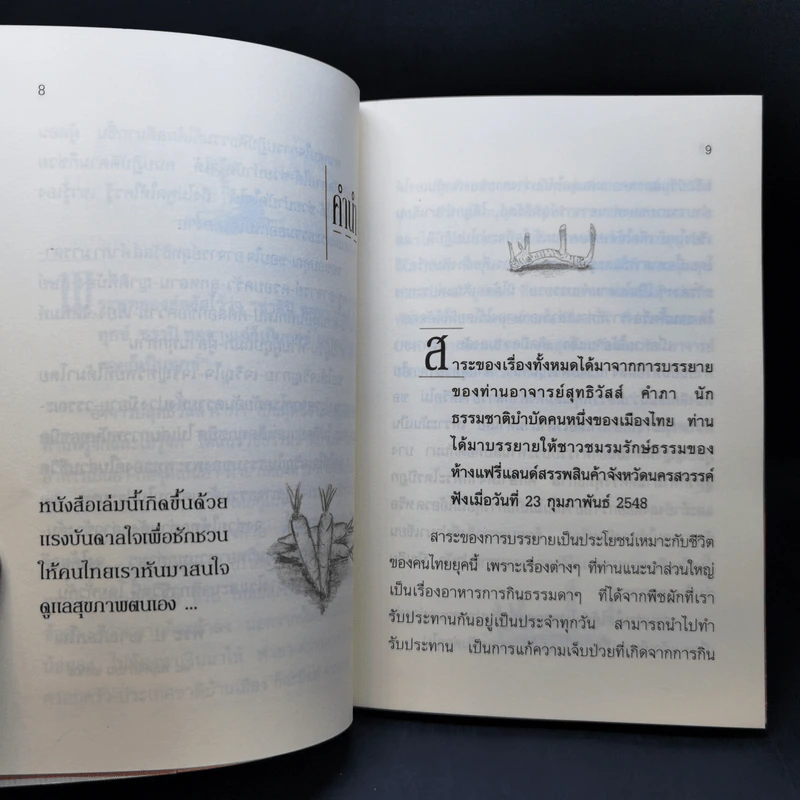 8
คำนำ
หนังสือเล่มนี้เกิดขึ้นด้วย
แรงบันดาลใจเพื่อชักชวน
ให้คนไทยเราหันมาสนใจ
ดูแลสุขภาพตนเอง ...
9
สาระของเรื่องทั้งหมดได้มาจากการบรรยาย
ของท่านอาจารย์สุทธิวัสส์ คำภา นัก
ธรรมชาติบำบัดคนหนึ่งของเมืองไทย ท่าน
ได้มาบรรยายให้ชาวชมรมรักษ์ธรรมของ
ห้างแฟรี่แลนด์สรรพสินค้าจังหวัดนครสวรรค์
ฟังเมื่อวันที่ 23 กุมภาพันธ์ 2548
สาระของการบรรยายเป็นประโยชน์เหมาะกับชีวิต
ของคนไทยยุคนี้ เพราะเรื่องต่างๆ ที่ท่านแนะนำส่วนใหญ่
เป็นเรื่องอาหารการกินธรรมดาๆ ที่ได้จากพืชผักที่เรา
รับประทานกันอยู่เป็นประจำทุกวัน สามารถนำไปทำ
รับประทาน เป็นการแก้ความเจ็บป่วยที่เกิดจากการกิน